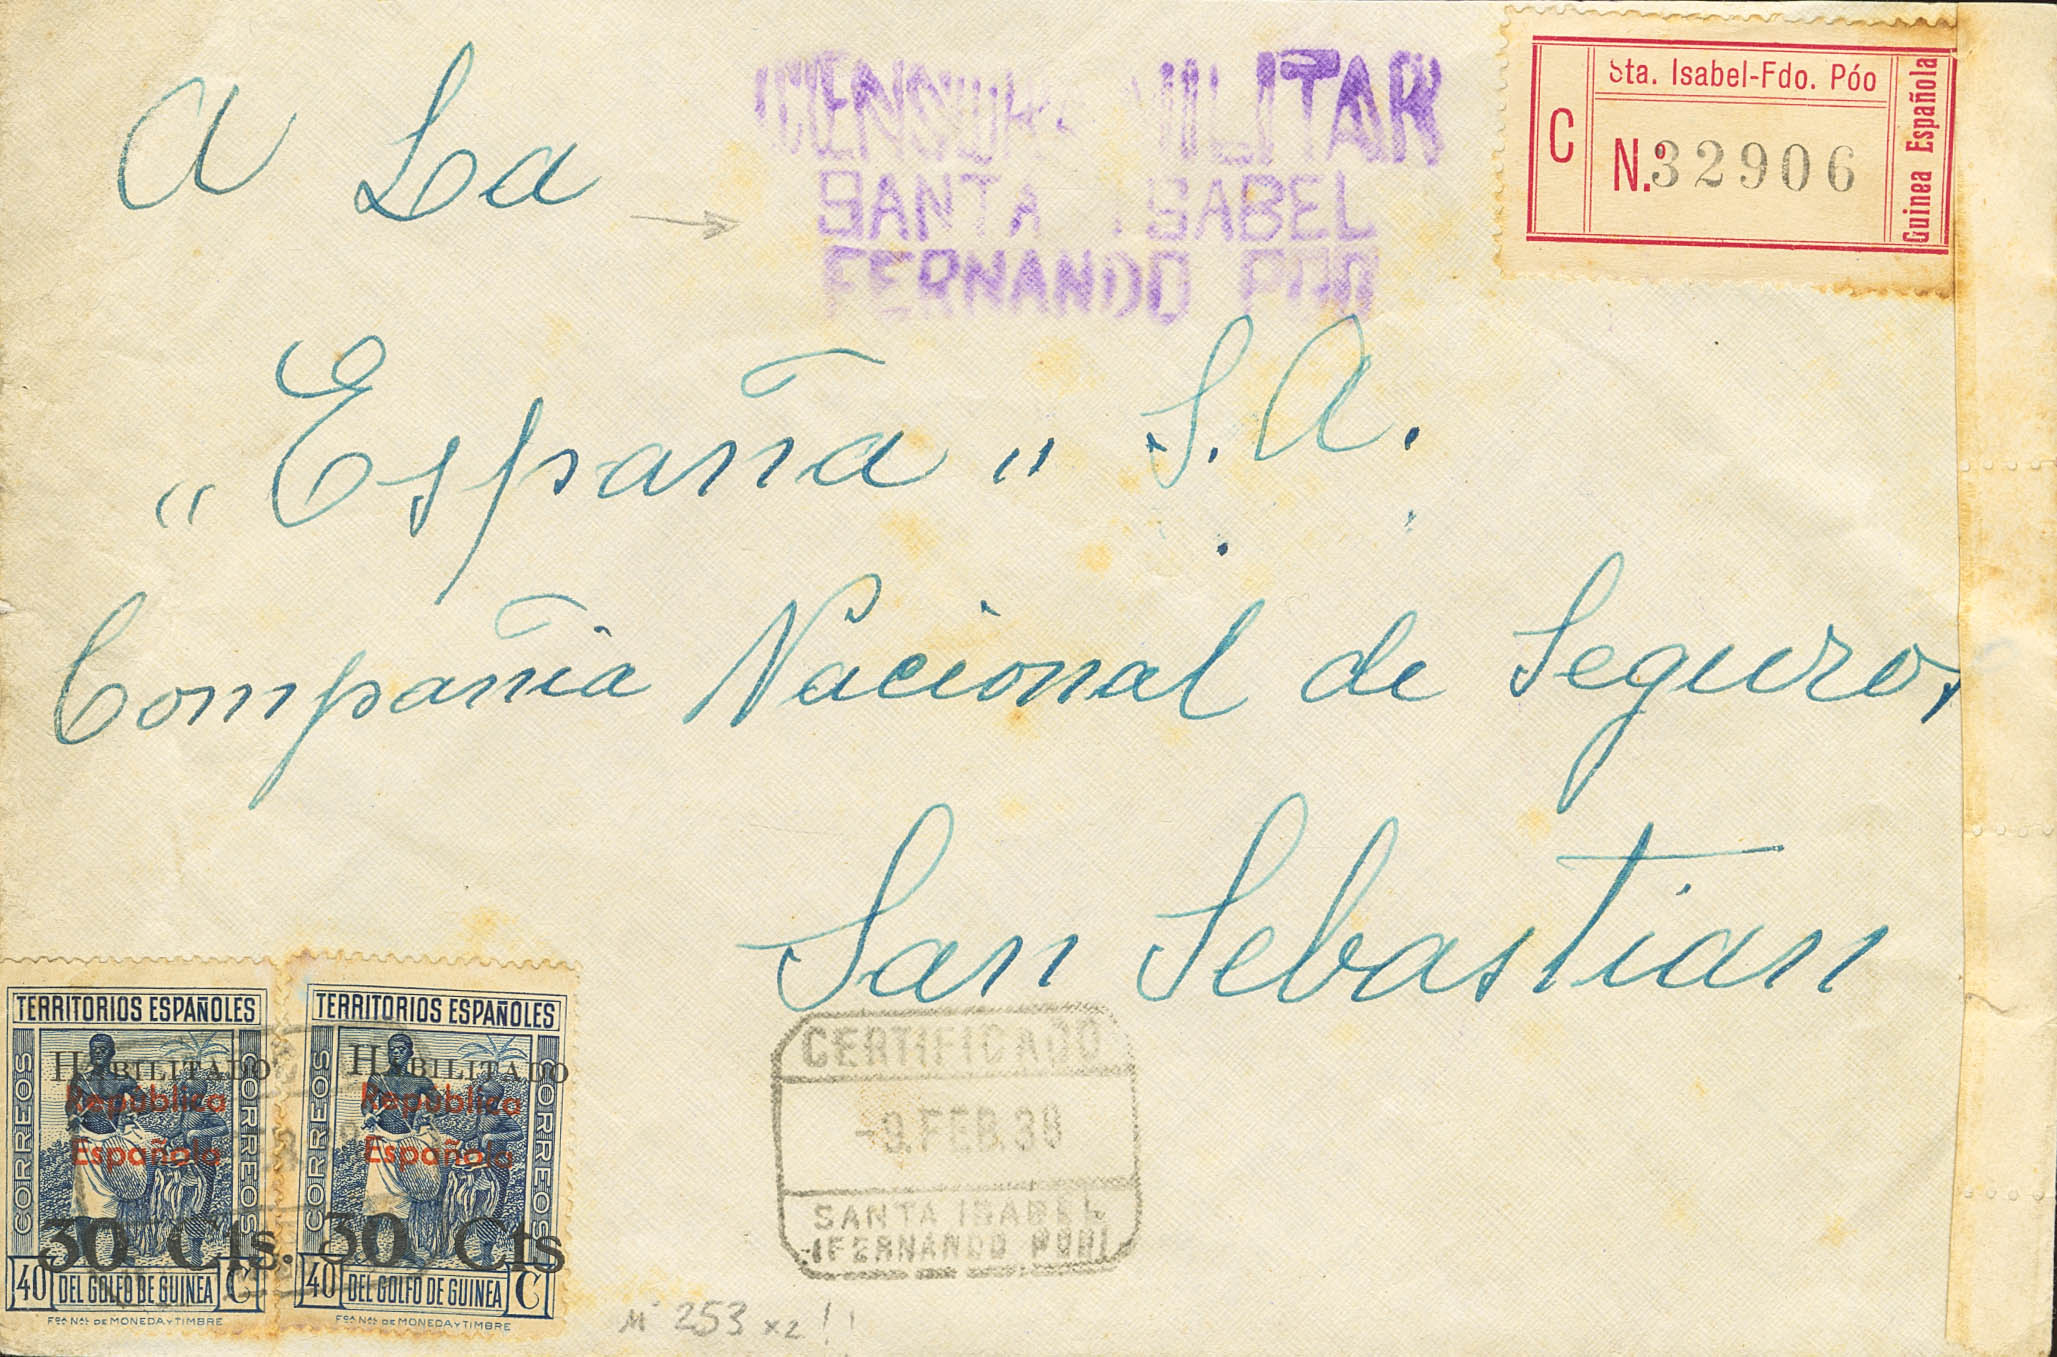 A La
CENSURA MILITAR
SANTA ISABEL
FERNANDO POO
Sta. Isabel-Fdo. Póo
C
N.º 32906
Guinea Española
"España" S.A.
Compañia Nacional de Seguros
San Sebastian
TERRITORIOS ESPAÑOLES
CORREOS
CORREOS
HABILITADO
República
Española
30 Cts.
40
DEL GOLFO DE GUINEA
C
Fca Nal DE MONEDA Y TIMBRE
TERRITORIOS ESPAÑOLES
CORREOS
CORREOS
HABILITADO
República
Española
30 Cts
40
DEL GOLFO DE GUINEA
C
Fca Nal DE MONEDA Y TIMBRE
CERTIFICADO
-9.FEB.38
SANTA ISABEL
(FERNANDO POO)
253 x2 !!